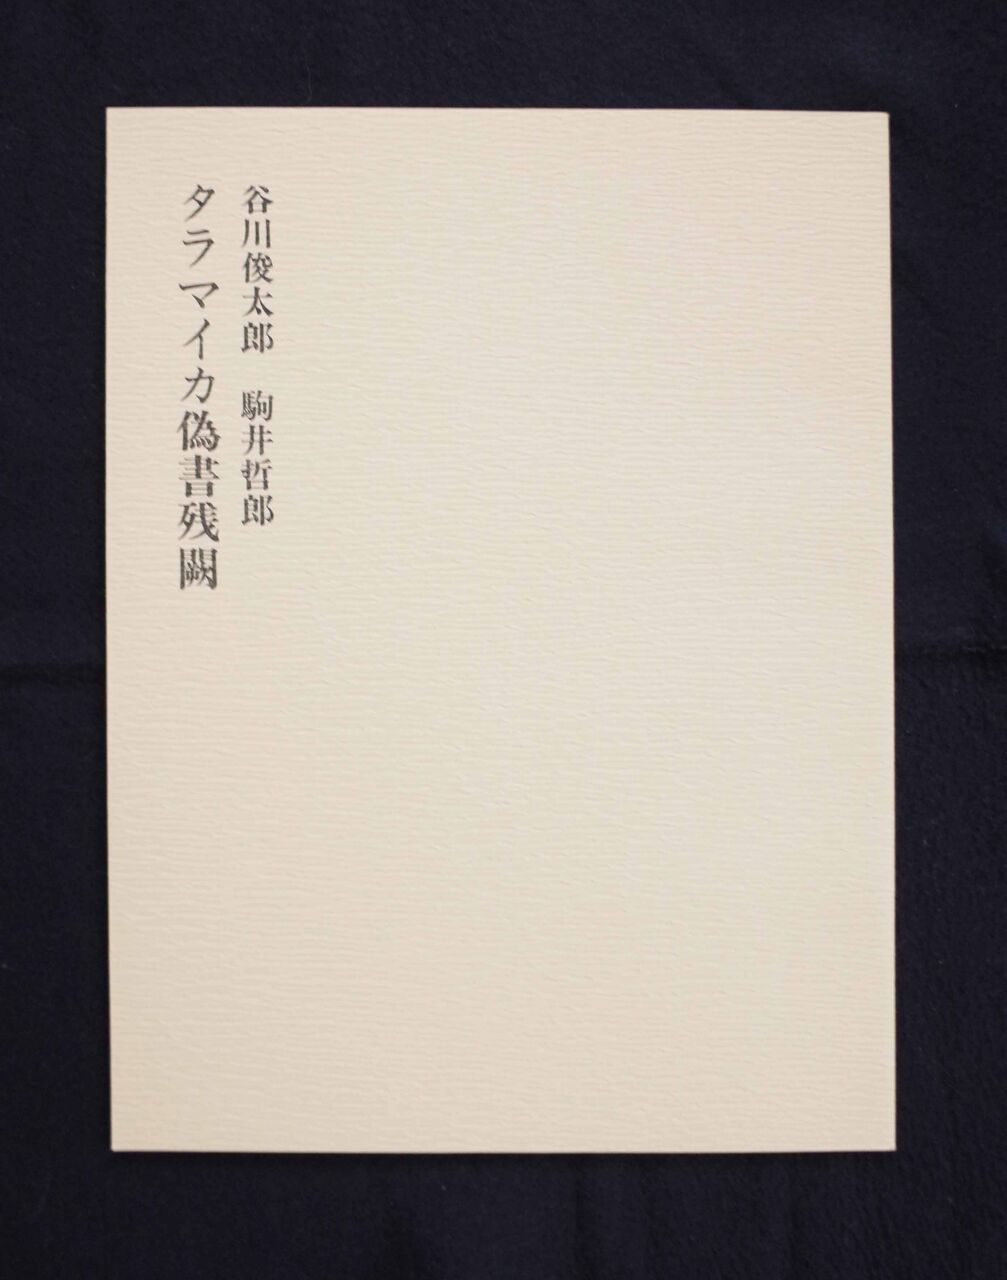 谷川俊太郎 駒井哲郎
タラマイカ偽書残闕